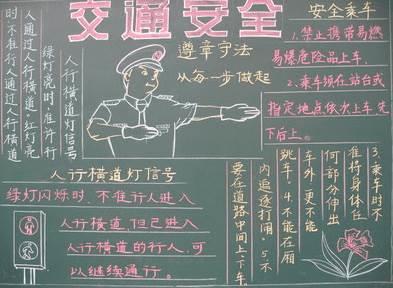 交通安全
遵章守法
从每一步做起
人行横道灯信号
绿灯亮时,准许行
人通过人行横道。红灯亮
时不准行人通过人行横道
人行横道灯信号
绿灯闪烁时,不准行人进入
人行横道,但已进入
人行横道的行人,可
以继续通行。
安全乘车
1.禁止携带易燃
易爆危险品上车.
2.乘车须在站台或
指定地点依次上车,先
下后上。
3.乘车时不
准将身体任
何部分伸出
车外,更不能
跳车。4.不能在厢
内追逐打闹。5.不
要在道路中间上、下车